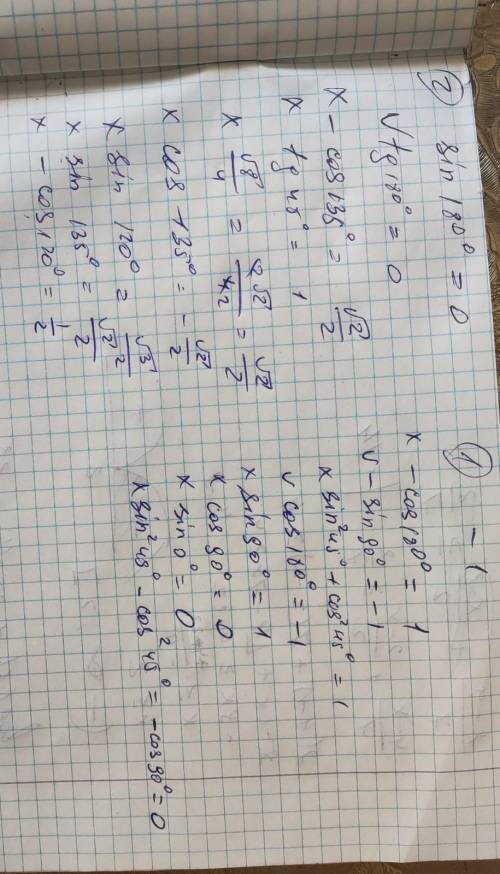 ② sin 180° = 0
V tg 180° = 0
x − cos 135° = √2/2
x tg 45° = 1
x √8/4 = 2√2/4₂ = √2/2
x cos 135° = − √2/2
x sin 120° = √3/2
x sin 135° = √2/2
x − cos 120° = 1/2
① − 1
x − cos 180° = 1
V − sin 90° = −1
x sin² 45° + cos² 45° = 1
V cos 180° = −1
x sin 90° = 1
x cos 90° = 0
x sin 0° = 0
x sin² 45° − cos² 45° = − cos 90° = 0